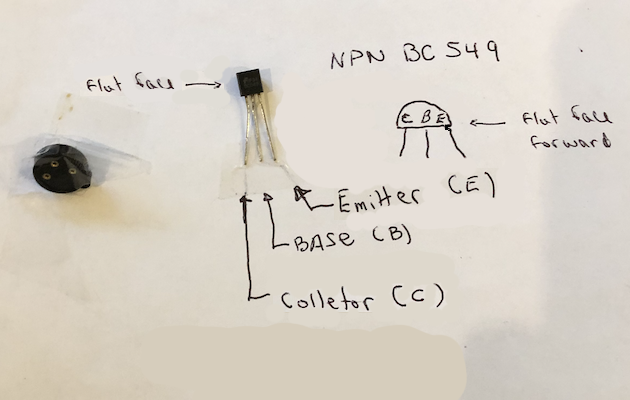 NPN BC 549
flat face
C B E
flat face
forward
Emitter (E)
BASE (B)
Colletor (C)